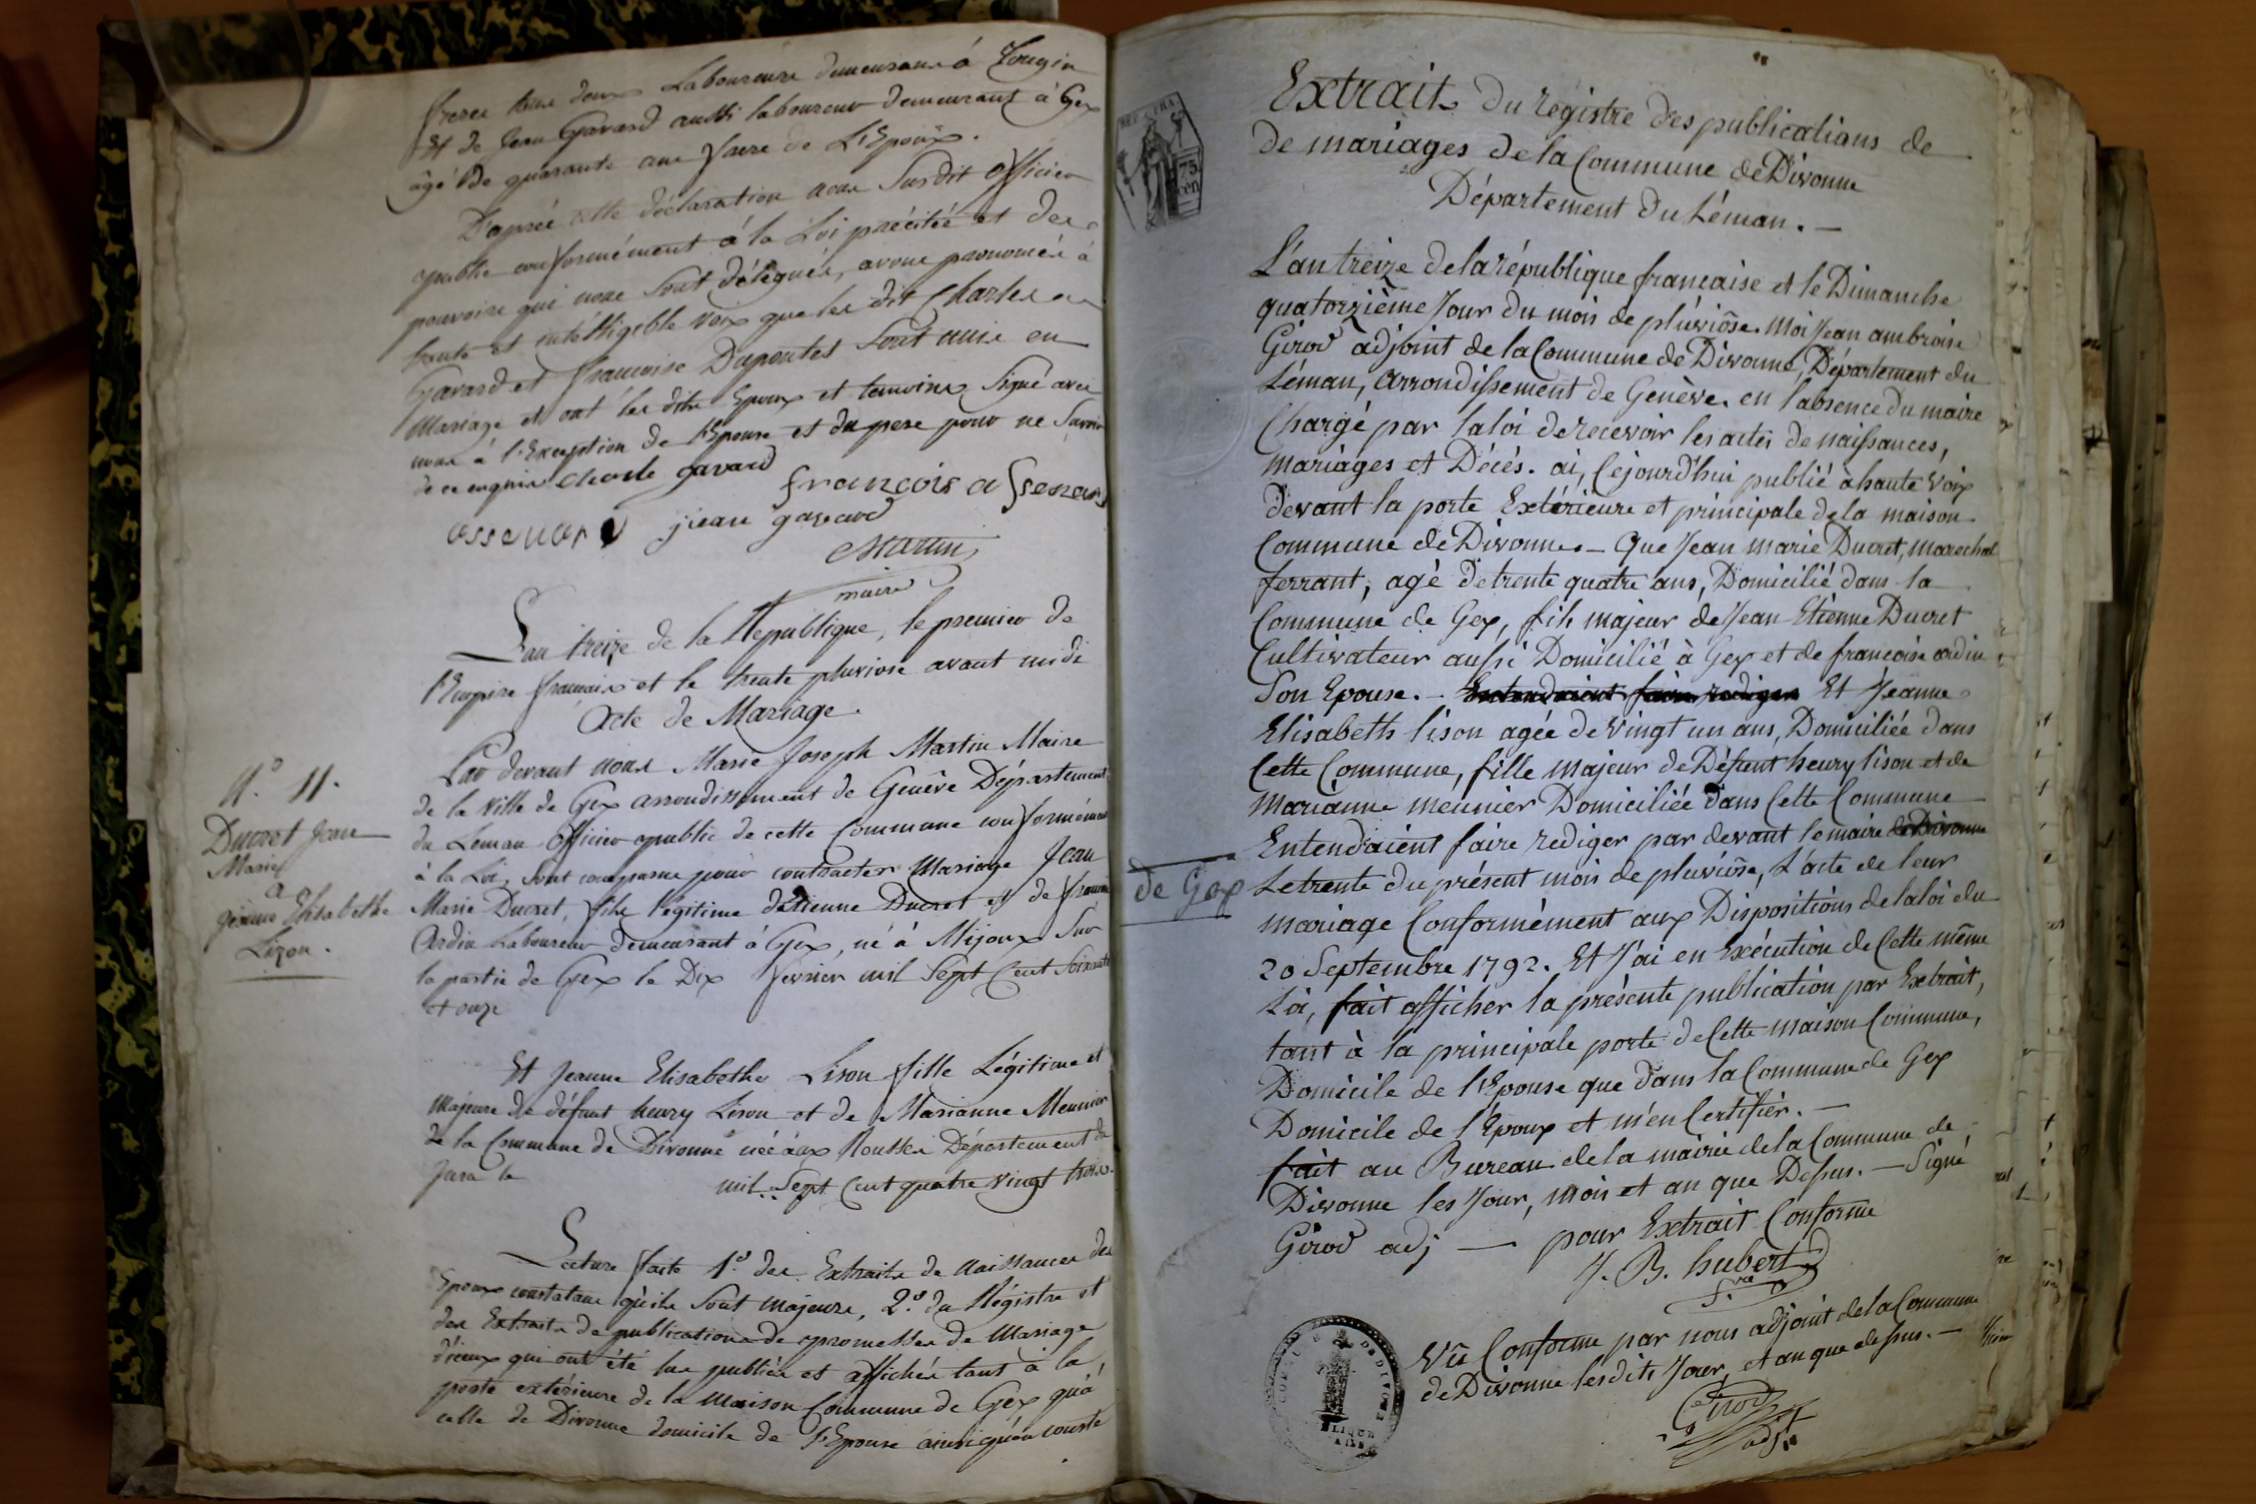 frères tous deux Laboureurs demeurans à Tougin
Et de Jean Gavard aussi laboureur demeurant à Gex
âgé de quarante ans frere de L'Epoux.
D'après cette déclaration nous Susdit officier
public conformément à la Loi précitée et des
pouvoirs qui nous Sont délégués, avons prononcés à
haute et intélligible voix que les dit Charles
Gavard et françoise Dupontet Sont unis en
Mariage et ont les dits Epoux et temoins Signé avec
nous à l'Exception de l'Epouse et du pere pour ne Savoir
de ce enquis charle gavard
françois assenard
assenard jean gavard
Martin
maire
L'an treize de la République, le premier de
l'Empire français et le trente pluviose avant midi
Acte de Mariage.
N.º 11.
Ducret Jean
Marie
a
Jeanne Elisabethe
Lizon.
Par devant nous Marie Joseph Martin Maire
de la ville de Gex arrondissement de Genêve Département
du Leman Officier public de cette Commune conformément
à la Loi, Sont comparus pour contracter Mariage Jean
Marie Ducret, fils légitime d'Etienne Ducret et de françoise
Ardin Laboureur demeurant à Gex, né à Mijoux Sur
la partie de Gex le Dix février mil Sept Cent Soixante
et onze
Et Jeanne Elisabethe Lison fille Légitime et
Majeure de défunt henry Lison et de Marianne Meunier
de la Commune de Divonne née aux Rousses Département du
Jura le mil Sept Cent quatre vingt trois.
Lecture faite 1.º des Extraits de naissances des
Epoux constatans qu'ils Sont Majeurs, 2.º du Régistre et
des Extraits de publications de promesses de Mariage
d'iceux qui ont été lus publiés et affichés tant à la
porte extérieure de la Maison Commune de Gex qu'à
celle de Divonne domicile de l'Epouse ainsi qu'en conste
REP. FRA.
75
cen
Extrait du registre des publications de
de mariages de la Commune de Divonne
Département du Léman. —
L'an treize de la république française et le Dimanche
quatorzième Jour du mois de pluviôse. Moi Jean ambroise
Girod adjoint de la Commune de Divonne, Département du
Léman, arrondissement de Genève. en l'absence du maire
Chargé par la loi de recevoir les actes de naissances,
mariages et Décès. ai, Cejourd'hui publié à haute voix
devant la porte Extérieure et principale de la maison
Commune de Divonne. — Que Jean marie Ducret, marechal
ferrant, agé de trente quatre ans, Domicilié dans la
Commune de Gex, fils majeur de Jean Etienne Ducret
Cultivateur aussi Domicilié à Gex et de françoise ardin
Son Epouse. — Entendraient faire rediger Et Jeanne
Elisabeth lison agée de vingt un ans, Domiciliée dans
Cette Commune, fille majeur de Défunt henry lison et de
Marianne meunier Domiciliée dans Cette Commune
Entendaient faire rediger par devant le maire de Divonne
de Gex
Le trente du présent mois de pluviôse, L'acte de leur
mariage Conformément aux Dispositions de la loi du
20 Septembre 1792. Et J'ai en Exécution de Cette même
Loi, fait afficher la présente publication par Extrait,
tant à la principale porte de Cette maison Commune,
Domicile de l'Epouse que dans la Commune de Gex
Domicile de l'Epoux et m'en Certifier. —
fait au Bureau de la mairie de la Commune de
Divonne les Jour, mois et an que Dessus. — Signé
Girod adj — pour Extrait Conforme
J. B. hubert
Vû Conforme par nous adjoint de la Commune
de Divonne lesdits Jour, et an que dessus. —
Girod
adj